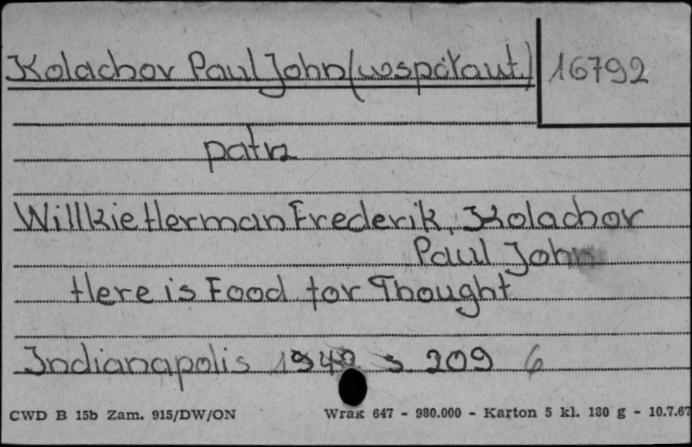 Kolachov Paul John (współaut.) 16792
patrz
Willkie Herman Frederik, Kolachov
Paul John
Here is Food for Thought
Indianapolis s. 209 6
CWD B 15b Zam. 915/DW/ON Wrak 647 - 980.000 - Karton 5 kl. 180 g - 10.7.67